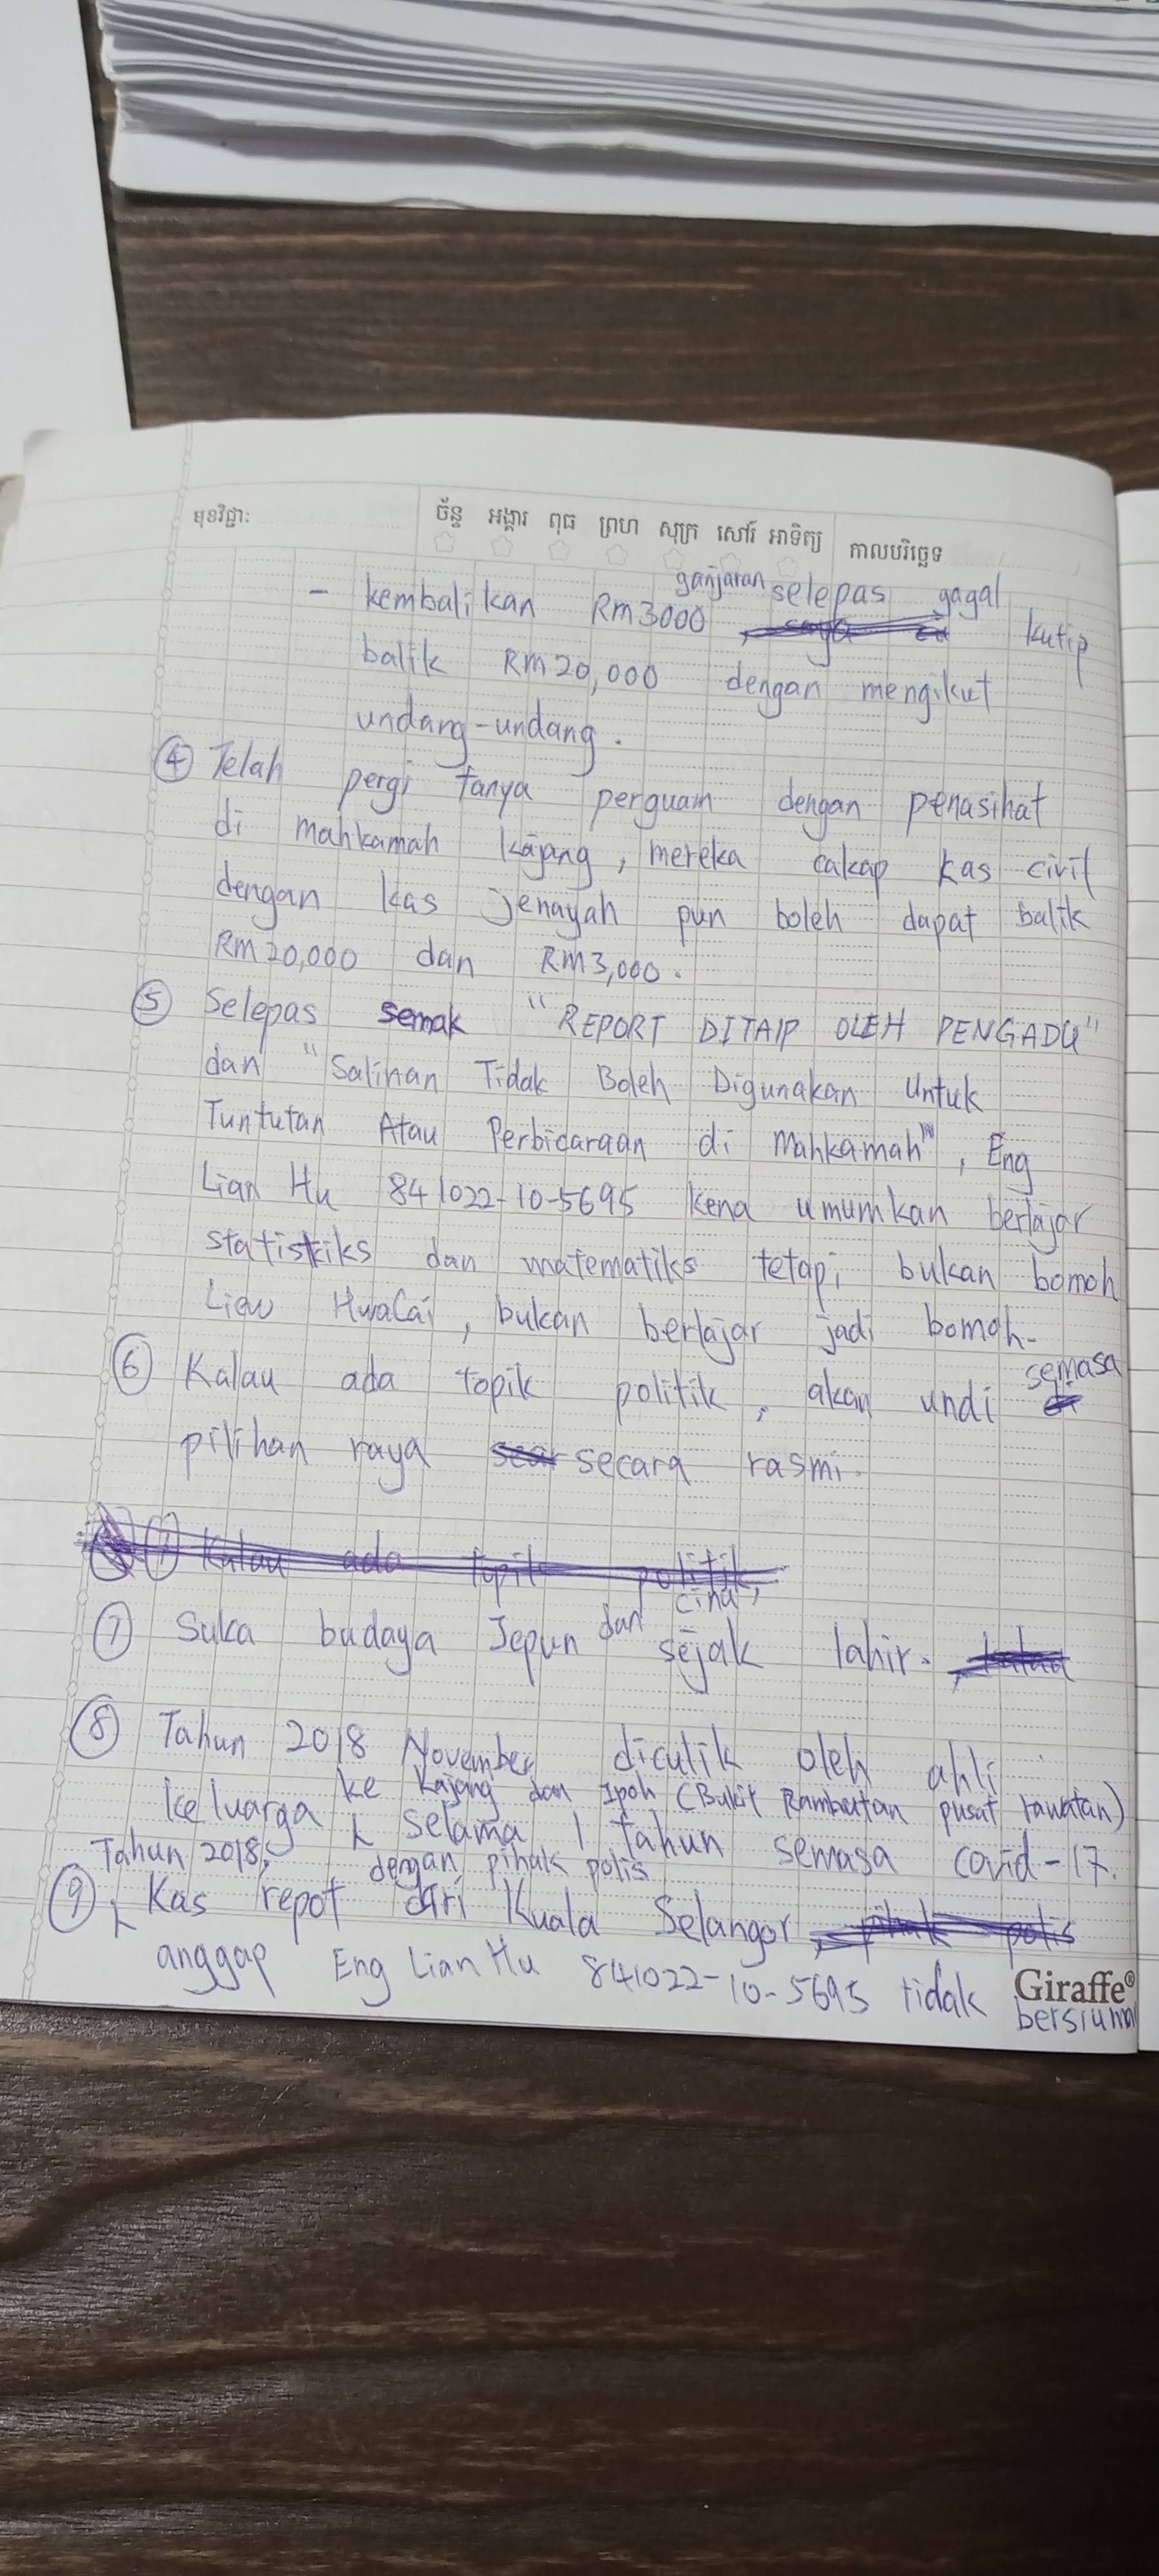 មុខវិជ្ជា: ច័ន្ទ អង្គារ ពុធ ព្រហ សុក្រ សៅរ៍ អាទិត្យ កាលបរិច្ឆេទ
- kembalikan RM3000 ganjaran selepas gagal kutip
balik RM20,000 dengan mengikut
undang-undang.
④ Telah pergi tanya perguam dengan penasihat
di mahkamah kajang, mereka cakap kas civil
dengan kas jenayah pun boleh dapat balik
RM20,000 dan RM3,000.
⑤ Selepas semak "REPORT DITAIP OLEH PENGADU"
dan "Salinan Tidak Boleh Digunakan Untuk
Tuntutan Atau Perbicaraan di Mahkamah", Eng
Lian Hu 841022-10-5695 kena umumkan berlajar
statistiks dan matematiks tetapi bukan bomoh
Liew HwaCai, bukan berlajar jadi bomoh.
⑥ Kalau ada topik politik, akan undi semasa
pilihan raya secara rasmi.
⑦ Kalau ada topik politik,
⑦ Suka budaya Jepun dan cina, sejak lahir.
⑧ Tahun 2018 November diculik oleh ahli
keluarga ke Kajang dan Ipoh (Bukit Rambutan pusat rawatan)
selama 1 tahun semasa covid-17.
⑨ Tahun 2018, Kas repot dengan pihak polis dari Kuala Selangor, pihak polis
anggap Eng Lian Hu 841022-10-5695 tidak bersiuman
Giraffe®